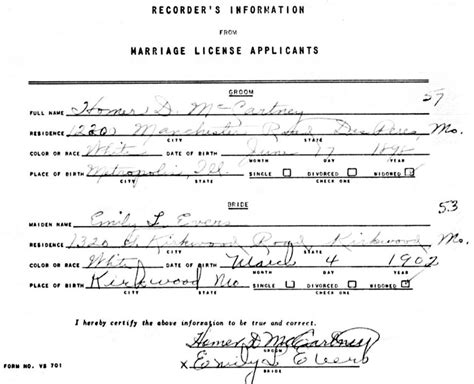 RECORDER'S INFORMATION
FROM
MARRIAGE LICENSE APPLICANTS
GROOM
57
FULL NAME Homer D. McCartney
RESIDENCE Manchester Road Des Peres Mo.
CITY STATE
COLOR OR RACE White DATE OF BIRTH June
MONTH DAY YEAR
PLACE OF BIRTH Metropolis Ill. SINGLE DIVORCED WIDOWED
CITY STATE CHECK ONE
BRIDE
53
MAIDEN NAME Emily L Evens
RESIDENCE 1320 Kirkwood Road Kirkwood Mo.
CITY STATE
COLOR OR RACE White DATE OF BIRTH March 4 1902
MONTH DAY YEAR
PLACE OF BIRTH Kirkwood Mo SINGLE DIVORCED WIDOWED
CITY STATE CHECK ONE
I hereby certify the above information to be true and correct.
Homer D McCartney
GROOM
X Emily L Evens
BRIDE
FORM NO. VS 701